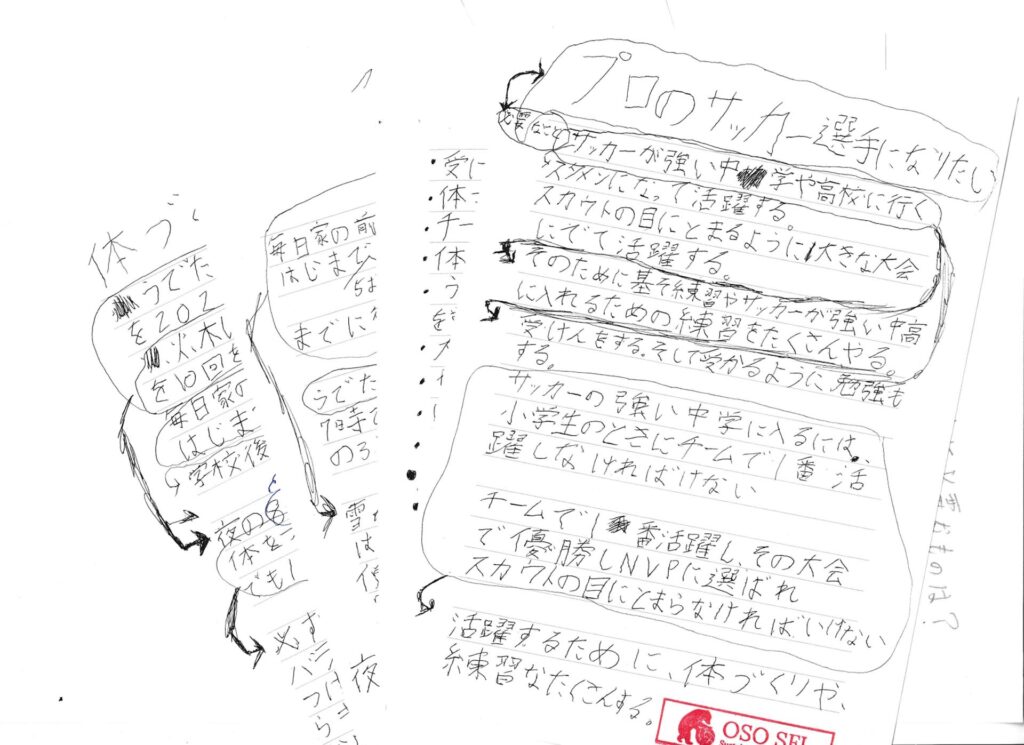 プロのサッカー選手になりたい
必要なこと
サッカーが強い中学や高校に行く
スタメンになって活躍する。
スカウトの目にとまるように大きな大会
にでて活躍する。
そのために基そ練習やサッカーが強い中高
に入れるための練習をたくさんやる。
受けんをする。そして受かるように勉強も
する。
サッカーの強い中学に入るには、
小学生のときにチームで1番活
躍しなければけない
チームで1番活躍し、その大会
で優勝しNVPに選ばれ
スカウトの目にとまらなければいけない
活躍するために、体づくりや、
練習なたくさんする。
OSO SEI
・受に
・体
・チー
・体
・う
毎日家の前
はじまび
までに
うでた
7時
の3
雪
は
夜
体づ
うでた
を202
火木
を10回を
毎日家の
はじま
学校後
夜の8
体を
でも
必ず
バラ
つけ
ら
なものは?